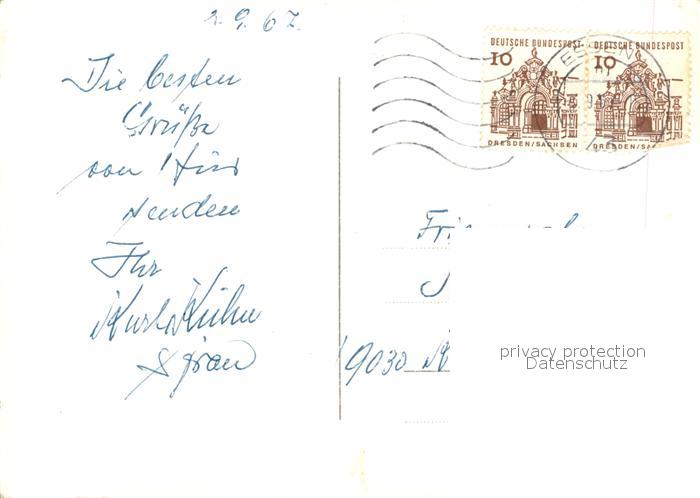 2.9.67.
Die besten
Grüße
von hier
senden
Ihr
Karl Kühn
& Frau
DEUTSCHE BUNDESPOST
10
DRESDEN/SACHSEN
DEUTSCHE BUNDESPOST
10
DRESDEN/SA
ESSEN
9030
privacy protection
Datenschutz